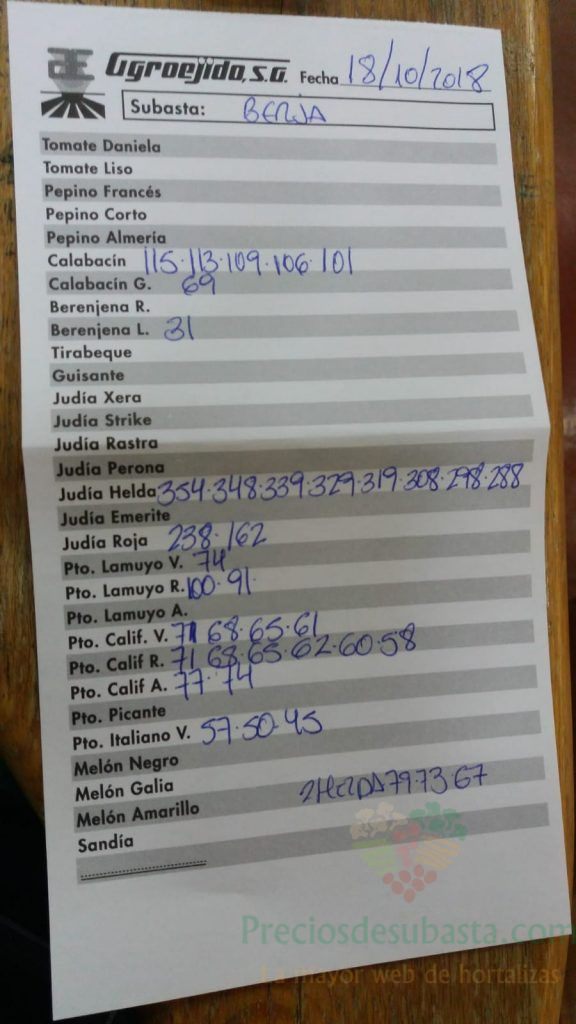 Agroejido, S.A. Fecha 18/10/2018
Subasta: BERJA
Tomate Daniela
Tomate Liso
Pepino Francés
Pepino Corto
Pepino Almería
Calabacín 115·113·109·106·101
Calabacín G. 69
Berenjena R.
Berenjena L. 31
Tirabeque
Guisante
Judía Xera
Judía Strike
Judía Rastra
Judía Perona
Judía Helda 354·348·339·329·319·308·298·288
Judía Emerite
Judía Roja 238·162
Pto. Lamuyo V. 74
Pto. Lamuyo R. 100·91·
Pto. Lamuyo A.
Pto. Calif. V. 71 68·65·61
Pto. Calif R. 71 68·65·62·60·58
Pto. Calif A. 77·74
Pto. Picante
Pto. Italiano V. 57·50·45
Melón Negro
Melón Galia
Melón Amarillo 79·73·67
Sandía
Preciosdesubasta.com
La mayor web de hortalizas